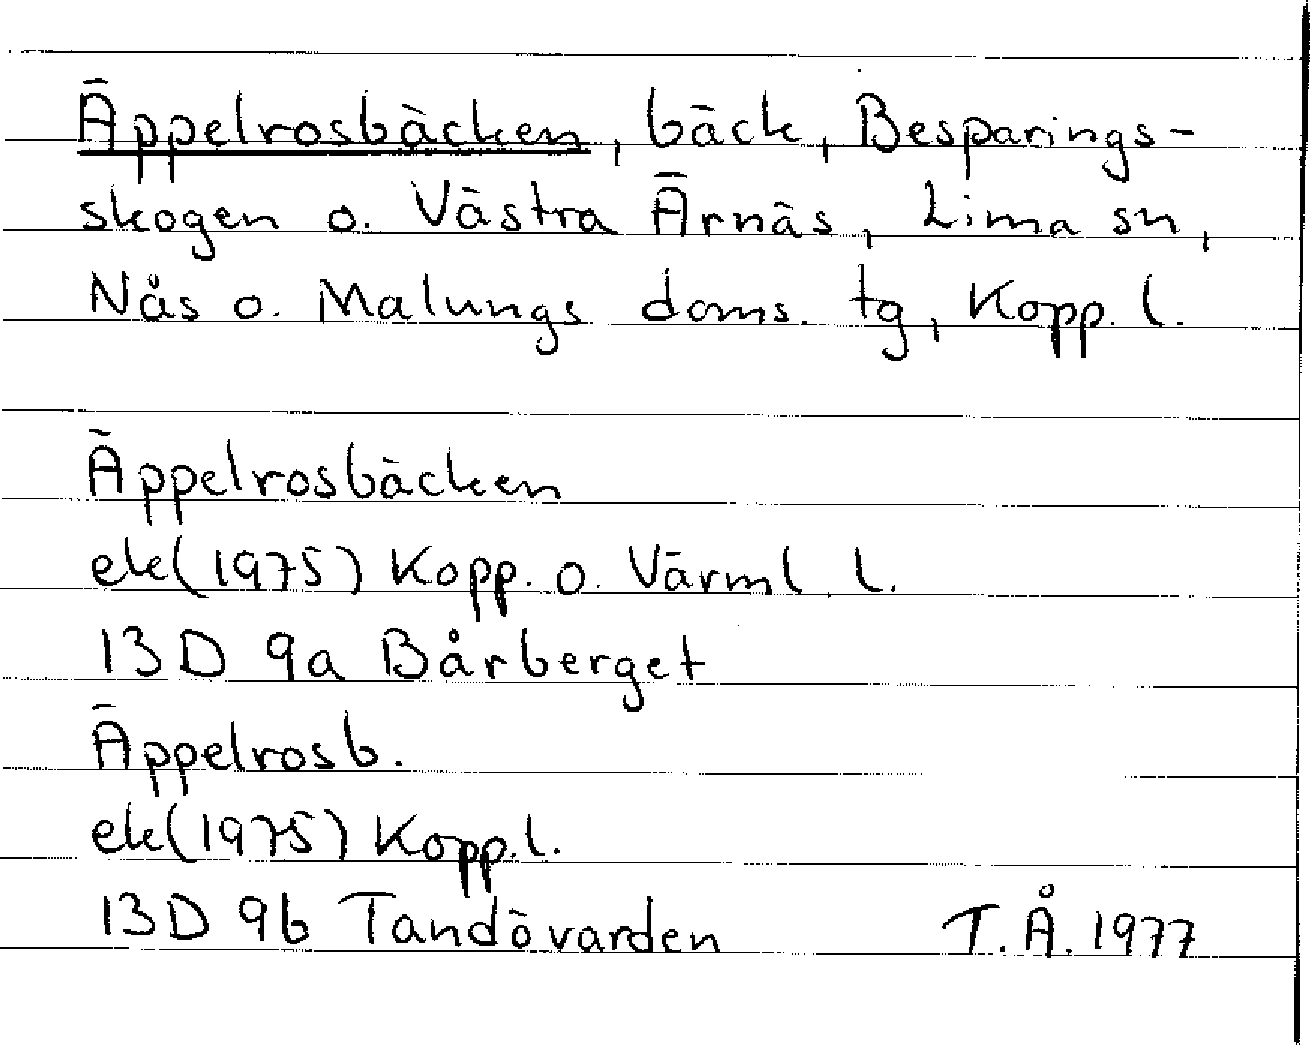 Äppelrosbäcken, bäck, Besparings-
skogen o. Västra Ärnäs, Lima sn,
Nås o. Malungs doms. tg, Kopp. l.
Äppelrosbäcken
ek(1975) Kopp. o. Värml l.
13D 9a Bårberget
Äppelrosb.
ek(1975) Kopp.l.
13D 9b Tandövarden T.Å.1977